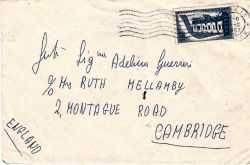 Gent. Sig.na Adelina Guerrieri
c/o Mrs RUTH MELLAMBY
2, MONTAGUE ROAD
CAMBRIDGE
ENGLAND